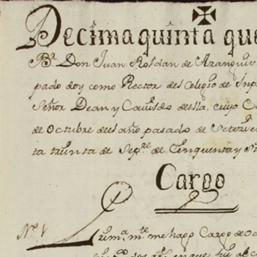 Decimaquinta que
Br. Don Juan Roldan de Aranguiv
pado doy como Rector del Colegio de Ynf
Señor Dean y Cavildo desta, cuyo Ca
de Octubre del año pasado de Setezien
ta treinta de Sepre. de Cinquenta y S
Cargo
No. 1
Prima. mte. me hago Cargo de